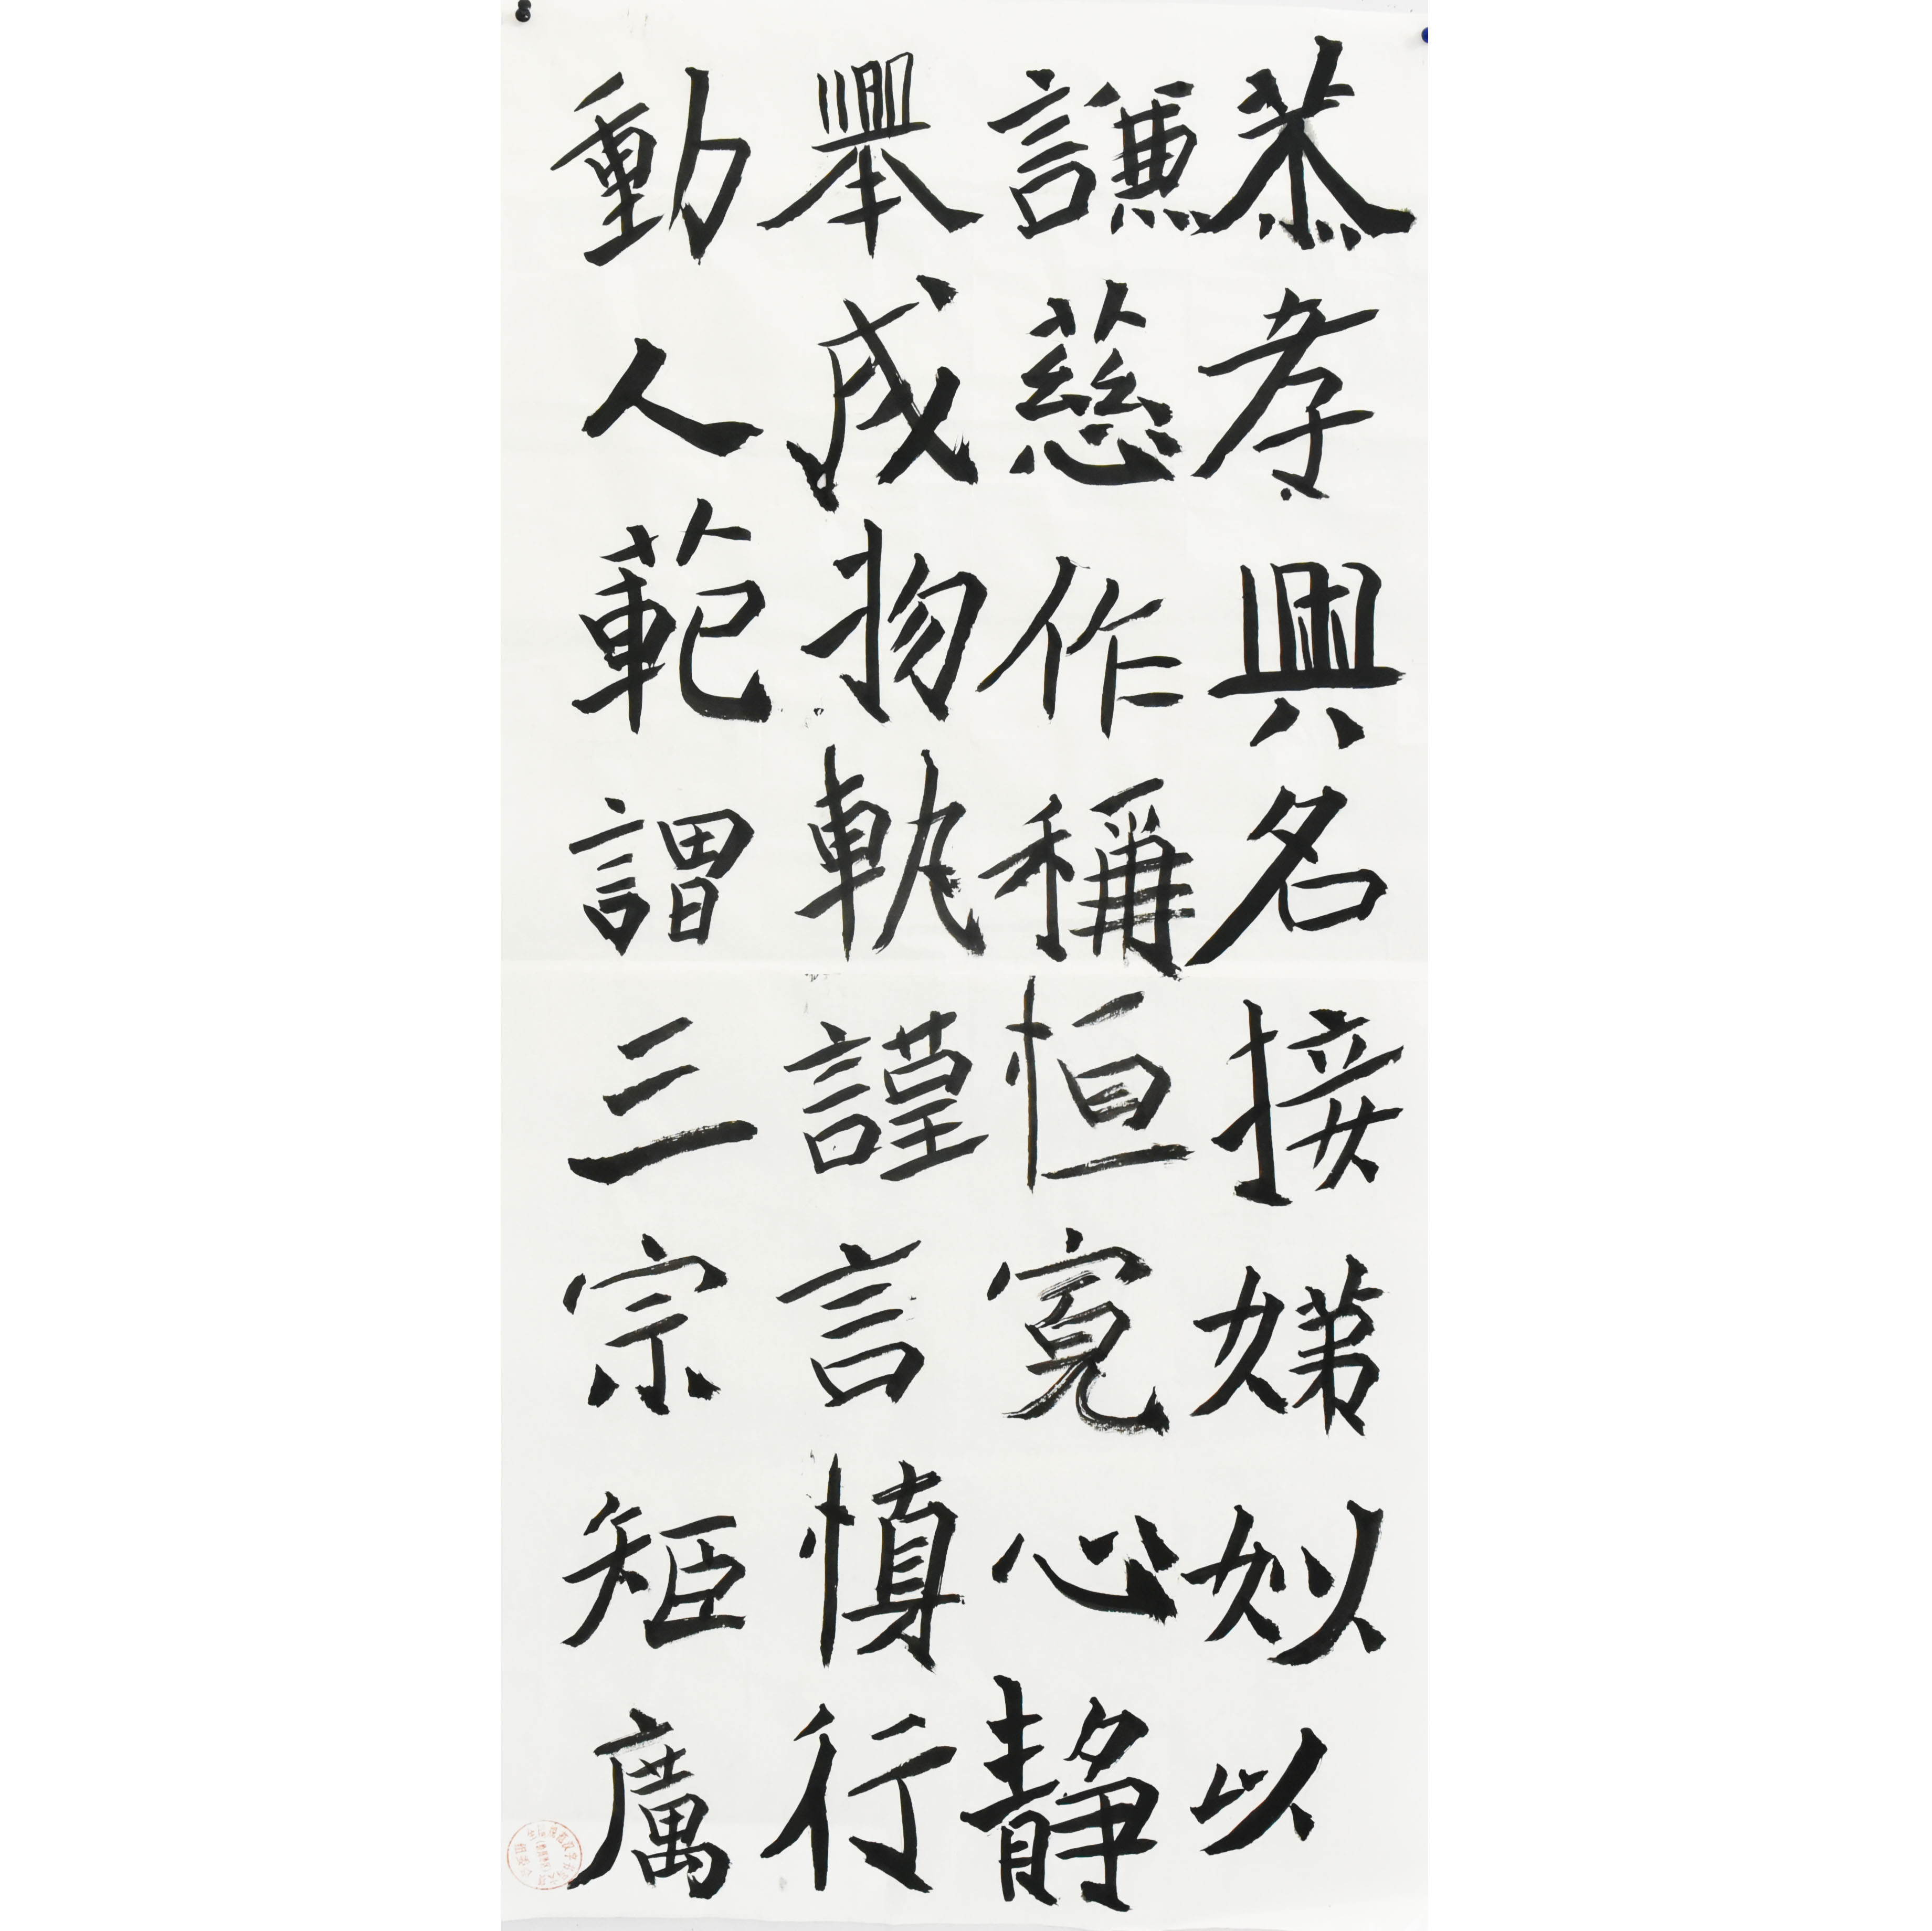 恭孝興名接娣姒以
謙慈作稱恒寬心靜
舉成物軌謹言慎行
動人範謂三宗矩厲